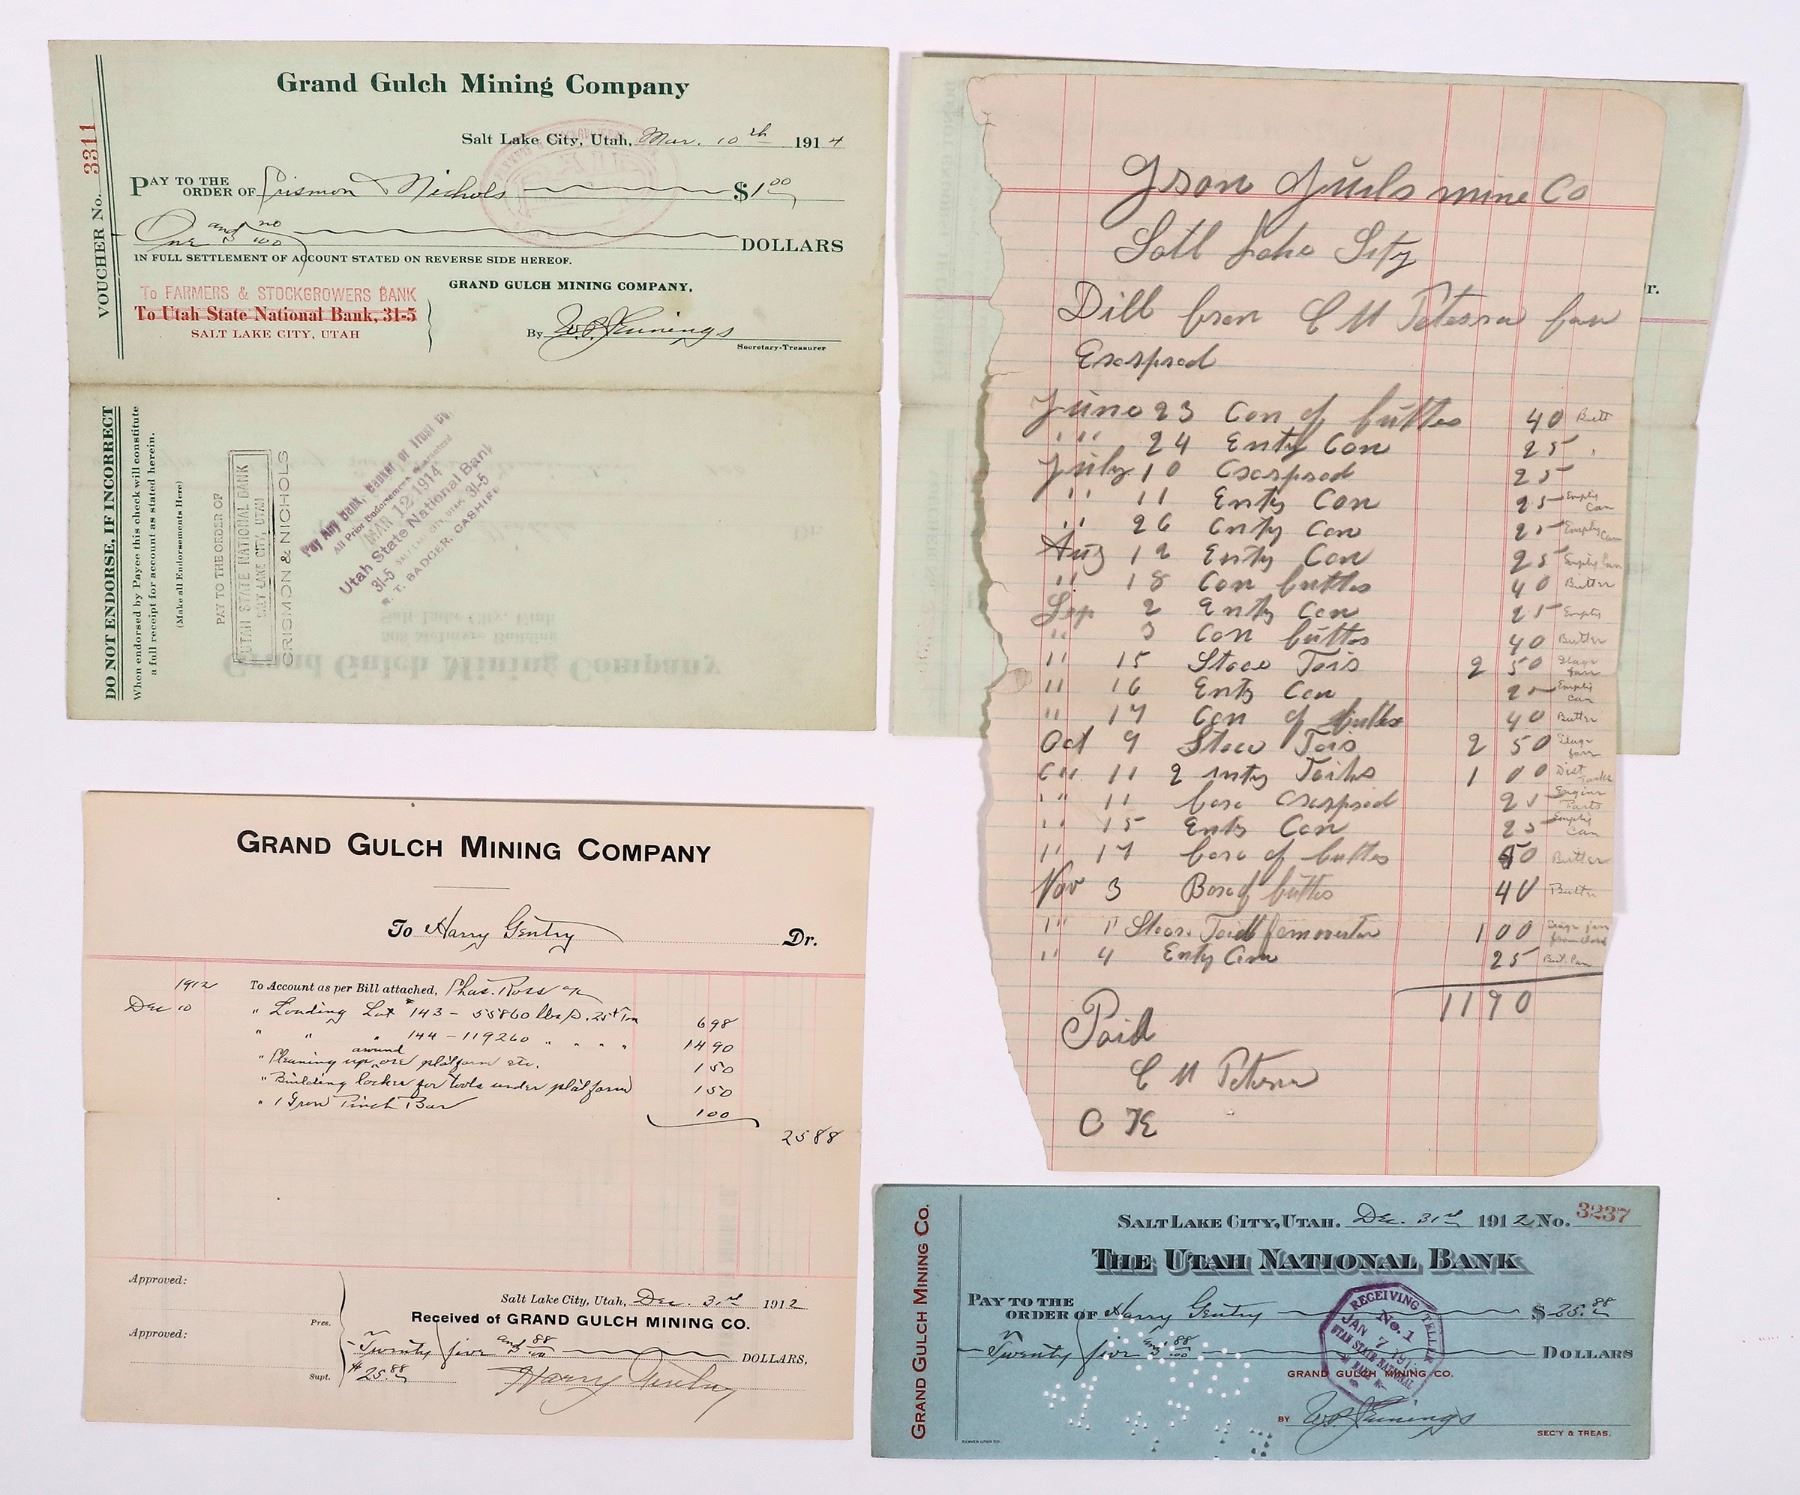 Grand Gulch Mining Company
Salt Lake City, Utah, Mar. 10th 1914
VOUCHER No. 3311
PAY TO THE ORDER OF Crismon & Nichols $1 00
One and no/100 DOLLARS
IN FULL SETTLEMENT OF ACCOUNT STATED ON REVERSE SIDE HEREOF.
To FARMERS & STOCKGROWERS BANK
To Utah State National Bank, 31-5
SALT LAKE CITY, UTAH
GRAND GULCH MINING COMPANY,
By W.P. Jennings
Secretary-Treasurer
DO NOT ENDORSE, IF INCORRECT
When endorsed by Payee this check will constitute
a full receipt for account as stated herein.
(Make all Endorsements Here)
PAY TO THE ORDER OF
UTAH STATE NATIONAL BANK
SALT LAKE CITY, UTAH
CRISMON & NICHOLS
Pay Any Bank, Banker or Trust Co.
All Prior Endorsements Guaranteed
MAR 12 1914
Utah State National Bank
31-5 31-5
R. T. BADGER, CASHIER
Dr.
Salt Lake City, Utah
Grand Gulch Mining Company
Gson Guls mine Co
Satl Lake Sity
Bill from C M Peterson for
Exspred
June 23 Con of buttes 40 Butt
" " 24 Enty Con 25
July 10 Exspred 25
" 11 Enty Con 25 Empty Can
" 26 Enty Con 25 Empty Can
Aug 12 Enty Con 25 Empty Can
" 18 Con buttes 40 Butter
Sep 2 Enty Con 25 Empty
" 3 Con buttes 40 Butter
" 15 Stoce Tois 2 50
" 16 Enty Con 25 Empty Can
" 17 Con of buttes 40 Butter
Oct 9 Stoce Tois 2 50
" 11 2 enty 1 00
" 11 box exspred 25 Engine Parts
" 15 Enty Con 25 Empty Can
" 17 box of buttes 50 Butter
Nov 3 Box of buttes 40 Butter
" 1 00
" 4 Enty Con 25
11 90
Paid
C M Peterson
r.
GRAND GULCH MINING COMPANY
To Harry Gentry Dr.
1912 To Account as per Bill attached, Chas. Ross
Dec 10 " Loading Lot #143 - 55860 lbs @ .25 Ton 6 98
" " " 144 - 119260 " " " " 14 90
" Cleaning up around ore platform etc. 1 50
" Building locker for tools under platform 1 50
" 1 Iron Pinch Bar 1 00
25 88
Approved:
Pres.
Approved:
Supt.
Salt Lake City, Utah, Dec. 31st 1912
Received of GRAND GULCH MINING CO.
Twenty five and 88/100 DOLLARS,
$25.88 Harry Gentry
GRAND GULCH MINING CO.
SALT LAKE CITY, UTAH. Dec. 31st 1912 No. 3237
THE UTAH NATIONAL BANK
PAY TO THE ORDER OF Harry Gentry $25.88
Twenty five and 88/100 DOLLARS
RECEIVING TELLER
No. 1
JAN 7 191
UTAH STATE NATIONAL BANK
GRAND GULCH MINING CO.
BY W.P. Jennings
SEC'Y & TREAS.